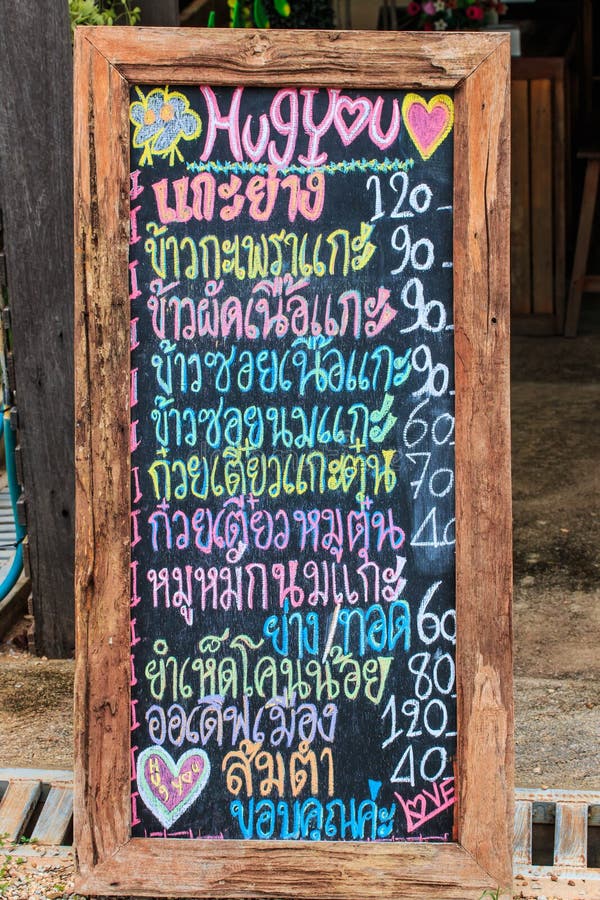 Hug You
แกะย่าง 120.-
ข้าวกะเพราแกะ 90.-
ข้าวผัดเนื้อแกะ 90.-
ข้าวซอยเนื้อแกะ 90.-
ข้าวซอยนมแกะ 60.-
ก๋วยเตี๋ยวแกะตุ๋น 70.-
ก๋วยเตี๋ยวหมูตุ๋น 40.-
หมูหมักนมแกะ
ย่าง/ทอด 60.-
ยำเห็ดโคนน้อย 80.-
ออเดิฟเมือง 120.-
Hug You ส้มตำ 40.-
ขอบคุณค่ะ LOVE